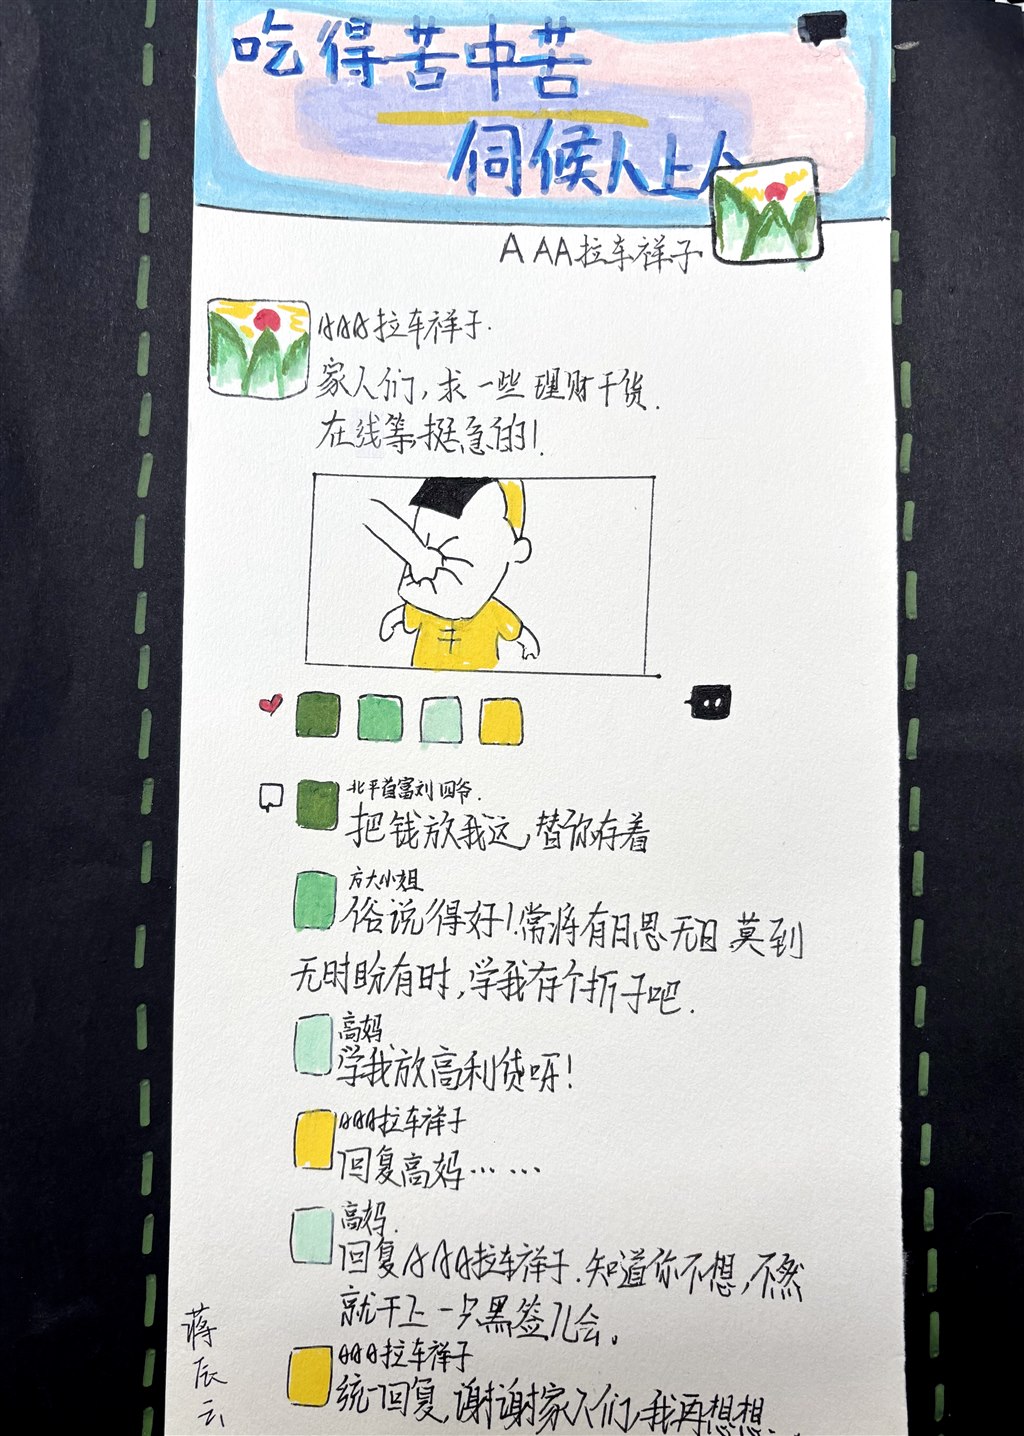 吃得苦中苦
伺候人上人
AAA拉车祥子
AAA拉车祥子.
家人们,求一些理财干货.
在线等,挺急的!
北平首富刘四爷.
把钱放我这,替你存着
方大小姐
俗说得好!常将有日思无日,莫到
无时盼有时,学我存个折子吧.
高妈
学我放高利贷呀!
AAA拉车祥子
回复高妈……
高妈.
回复AAA拉车祥子.知道你不想,不然
就干上一只黑签儿会。
AAA拉车祥子
统一回复,谢谢家人们,我再想想.
蒋辰云